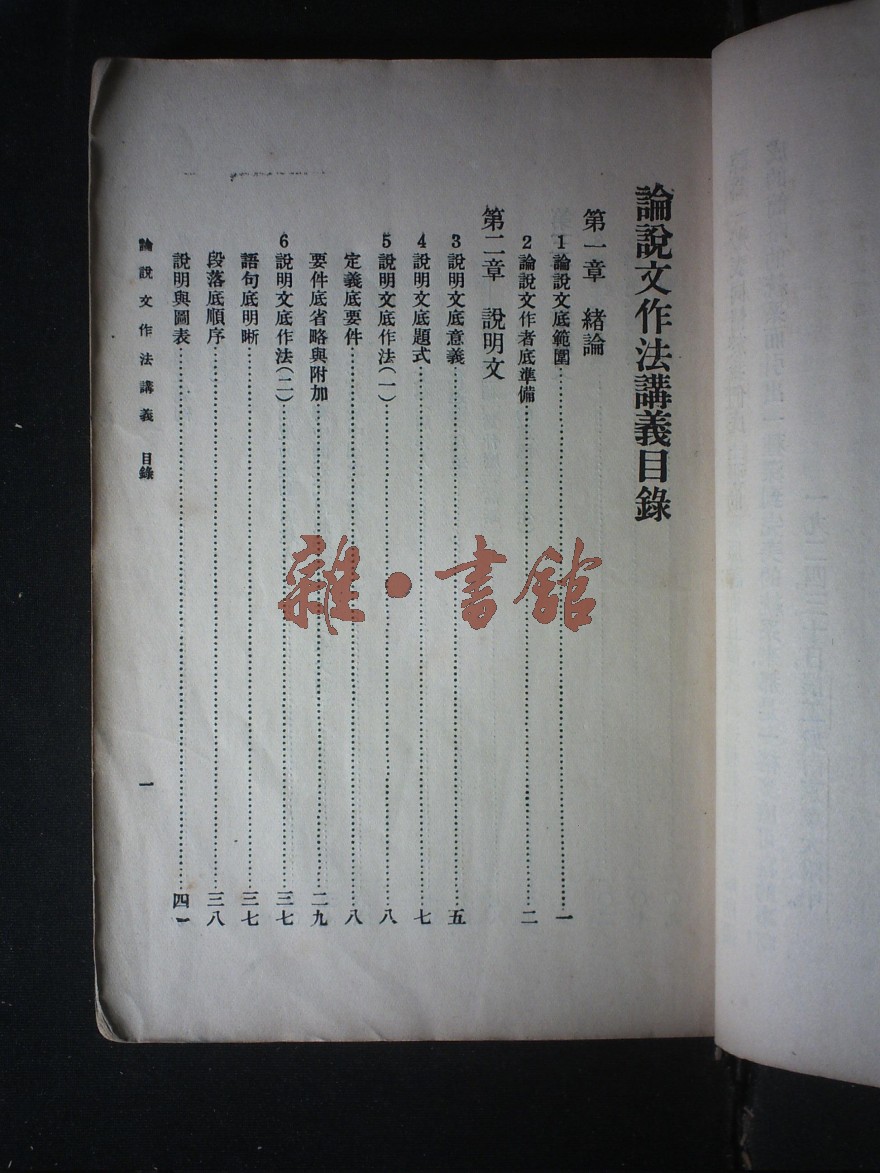 論說文作法講義目錄
第一章 緒論
1 論說文底範圍……一
2 論說文作者底準備……二
第二章 說明文
3 說明文底意義……五
4 說明文底題式……七
5 說明文底作法(一)……八
定義底要件……八
要件底省略與附加……二九
6 說明文底作法(二)……三七
語句底明晰……三七
段落底順序……三八
說明與圖表……四一
論說文作法講義 目錄
一
雜·書館